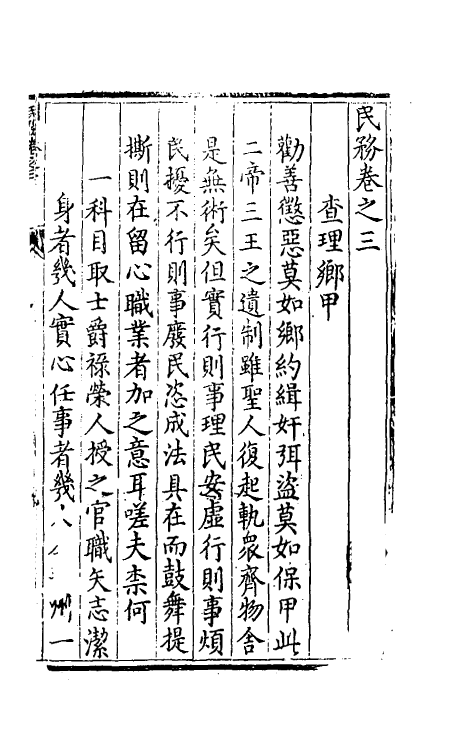 民務卷之三
查理鄉甲
勸善懲惡莫如鄉約緝奸弭盜莫如保甲此
二帝三王之遺制雖聖人復起執衆齊物舍
是無術矣但實行則事理民安虛行則事煩
民擾不行則事廢民恣成法具在而鼓舞提
撕則在留心職業者加之意耳嗟夫柰何
一科目取士爵祿榮人授之官職矢志潔
身者幾人實心任事者幾人
一